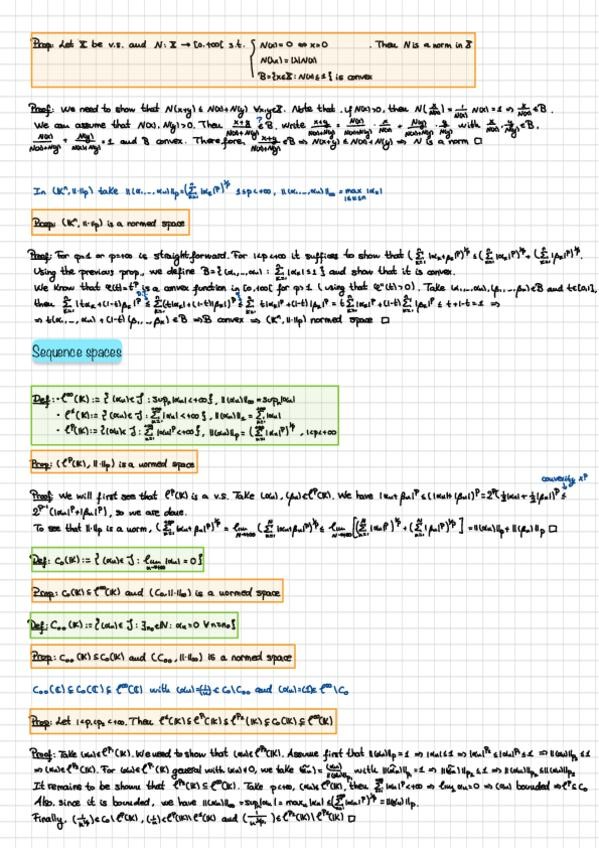 Prop: Let X be v.s. and N: X → [0,+∞[ s.t. { N(x) = 0 ⇔ x=0 . Then N is a norm in X
N(λx) = |λ|N(x)
B={x∈X: N(x)≤1} is convex
Proof: We need to show that N(x+y) ≤ N(x)+N(y) ∀x,y∈X. Note that if N(x)>0, then N(x/N(x)) = 1/N(x) N(x) = 1 ⇒ x/N(x) ∈B.
We can assume that N(x), N(y)>0. Then x+y/N(x)+N(y) ∈B. Write x+y/N(x)+N(y) = N(x)/N(x)+N(y) · x/N(x) + N(y)/N(x)+N(y) · y/N(y) with x/N(x), y/N(y) ∈B,
N(x)/N(x)+N(y) + N(y)/N(x)+N(y) = 1 and B convex. Therefore, x+y/N(x)+N(y) ∈B ⇒ N(x+y) ≤ N(x)+N(y) ⇒ N is a norm □
In (Kⁿ, ||·||p) take ||(α₁,...,αn)||p = (Σ|αk|^p)^1/p 1≤p<+∞, ||(α₁,...,αn)||∞ = max |αk|
1≤k≤n
Prop: (Kⁿ, ||·||p) is a normed space
Proof: For p=1 or p=+∞ is straightforward. For 1<p<+∞ it suffices to show that (Σ|αk+βk|^p)^1/p ≤ (Σ|αk|^p)^1/p + (Σ|βk|^p)^1/p.
Using the previous prop., we define B={(α₁,...,αn) : Σ|αk|^p ≤ 1} and show that it is convex.
We know that φ(t)=t^p is a convex function in [0,+∞[ for p>1 (using that φ''(t)>0). Take (α₁,...,αn), (β₁,...,βn)∈B and t∈[0,1],
then Σ|tαk+(1-t)βk|^p ≤ Σ(t|αk|+(1-t)|βk|)^p ≤ Σ t|αk|^p+(1-t)|βk|^p = tΣ|αk|^p+(1-t)Σ|βk|^p ≤ t+1-t = 1 ⇒
⇒ t(α₁,...,αn) + (1-t)(β₁,...,βn) ∈B ⇒B convex ⇒ (Kⁿ, ||·||p) normed space □
Sequence spaces
Def: · ℓ^∞(K) := { (αn)∈ J : supn|αn|<+∞ }, ||(αn)||∞ = supn|αn|
· ℓ¹(K) := { (αn)∈ J : Σ|αn|<+∞ }, ||(αn)||₁ = Σ|αn|
· ℓ^p(K) := { (αn)∈ J : Σ|αn|^p<+∞ }, ||(αn)||p = (Σ|αn|^p)^1/p, 1<p<+∞
Prop: (ℓ^p(K), ||·||p) is a normed space
convexity x^p
Proof: We will first see that ℓ^p(K) is a v.s. Take (αn), (βn)∈ℓ^p(K). We have |αn+βn|^p ≤ (|αn|+|βn|)^p = 2^p(½|αn|+½|βn|)^p ≤
2^p-1(|αn|^p+|βn|^p), so we are done.
To see that ||·||p is a norm, (Σ|αn+βn|^p)^1/p = lim (Σ|αn+βn|^p)^1/p ≤ lim [(Σ|αn|^p)^1/p + (Σ|βn|^p)^1/p] = ||(αn)||p + ||(βn)||p □
Def: C₀(K) := { (αn)∈ J : lim |αn| = 0 }
Prop: C₀(K) ⊊ ℓ^∞(K) and (C₀, ||·||∞) is a normed space
Def: C₀₀(K) := {(αn)∈ J : ∃n₀∈N : αn=0 ∀n≥n₀}
Prop: C₀₀(K) ⊊ C₀(K) and (C₀₀, ||·||∞) is a normed space
C₀₀(K) ⊊ C₀(K) ⊊ ℓ^∞(K) with (αn)=(1/n) ∈ C₀\C₀₀ and (αn)=(1)∈ ℓ^∞\C₀
Prop: Let 1<p₁<p₂<+∞. Then ℓ¹(K) ⊊ ℓ^p₁(K) ⊊ ℓ^p₂(K) ⊊ C₀(K) ⊊ ℓ^∞(K)
Proof: Take (αn)∈ℓ^p₁(K). We need to show that (αn)∈ℓ^p₂(K). Assume first that ||(αn)||p₁ = 1 ⇒ |αn| ≤ 1 ⇒ |αn|^p₂ ≤ |αn|^p₁ ≤ 1 ⇒ ||(αn)||p₂ ≤ 1
⇒ (αn)∈ℓ^p₂(K). For (αn)∈ℓ^p₁(K) general with (αn)≠0, we take (α̃n) = (αn)/||(αn)||p₁ with ||(α̃n)||p₁ = 1 ⇒ ||(α̃n)||p₂ ≤ 1 ⇒ ||(αn)||p₂ ≤ ||(αn)||p₁
It remains to be shown that ℓ^p₂(K) ⊊ ℓ^∞(K). Take p<+∞, (αn)∈ ℓ^p(K), then Σ|αn|^p<+∞ ⇒ lim αn=0 ⇒ (αn) bounded ⇒ ℓ^p ⊆ C₀
Also, since it is bounded, we have ||(αn)||∞ = supn|αn| = maxn |αn| ≤ (Σ|αn|^p)^1/p = ||(αn)||p.